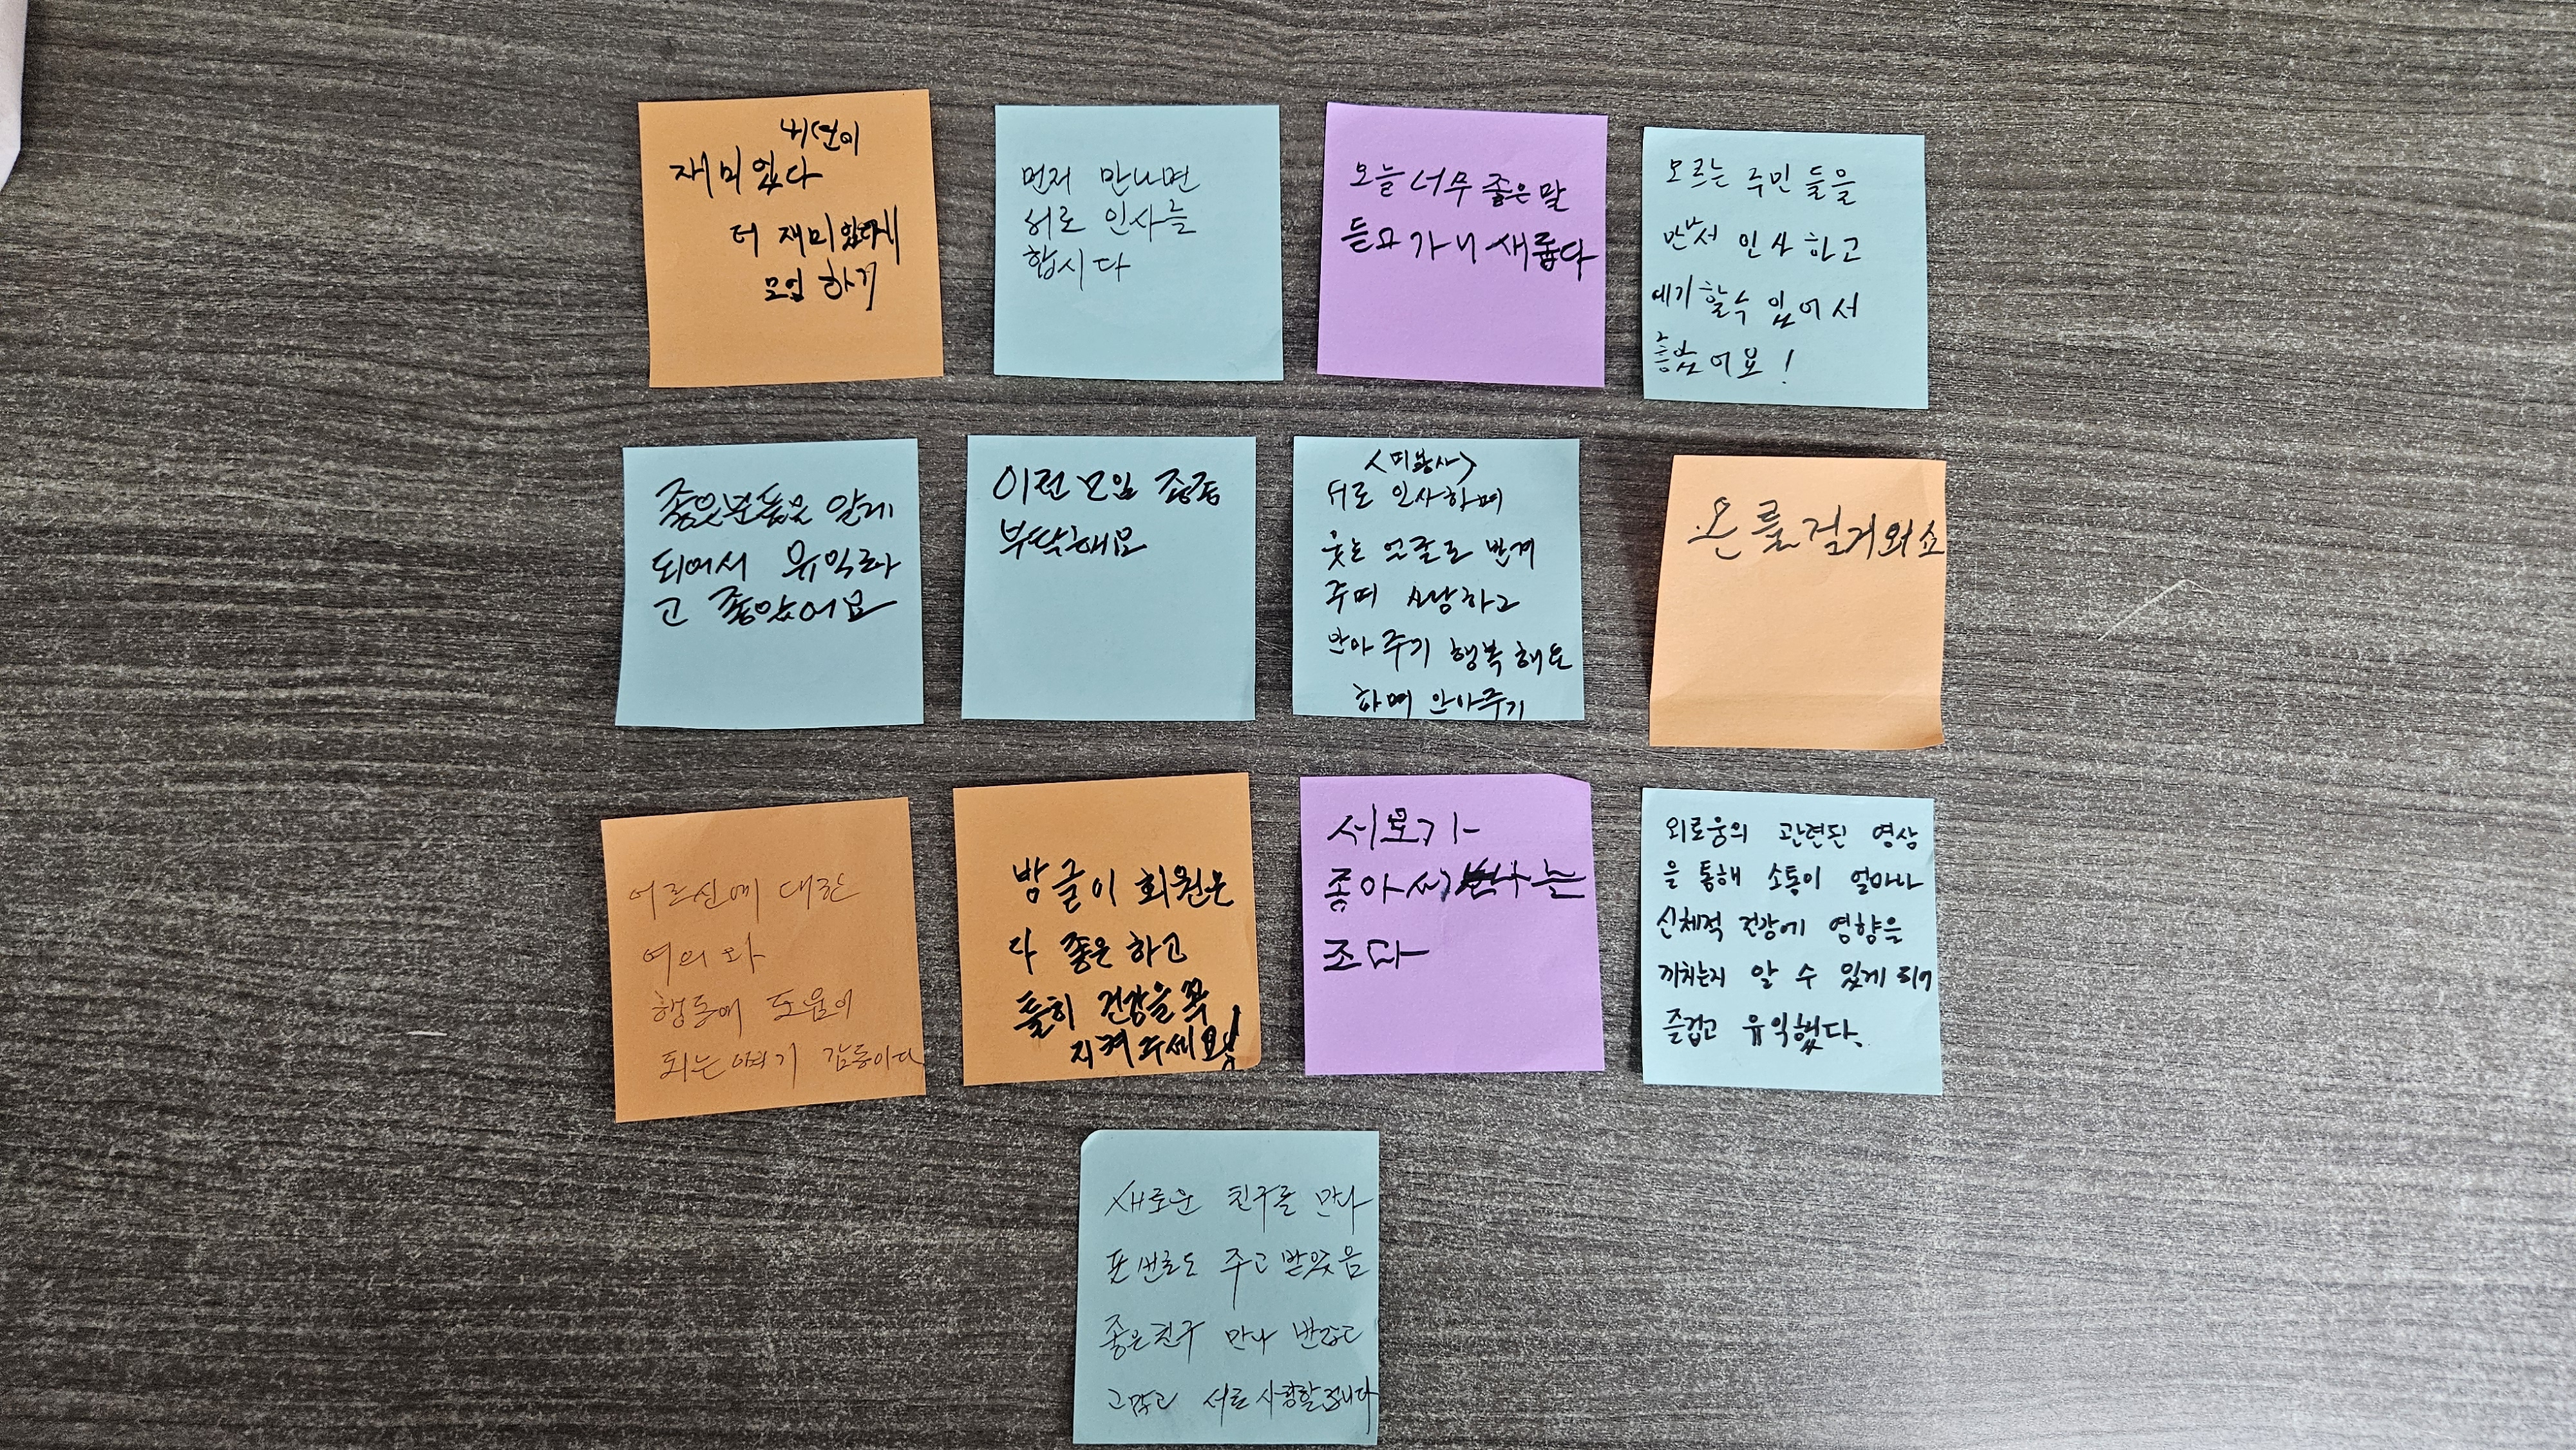 재미있다
더 재미있게
모임 하기
먼저 만나면
서로 인사를
합시다
오늘 너무 좋은말
듣고 가니 새롭다
모르는 주민들을
만나서 인사하고
얘기할수 있어서
좋았어요!
좋은분들을 알게
되어서 유익하
고 좋았어요
이런모임 종종
부탁해요
서로 인사하며
웃는 얼굴로 반겨
주며 사랑하고
안아주기 행복해요
하며 안아주기
어르신에 대한
예의와
행동에 도움이
되는 감동이다
방글이 회원은
다 좋은 하고
특히 건강을 꼭
지켜주세요!
서로가
좋아서
조다
외로움의 관련된 영상
을 통해 소통이 얼마나
신체적 건강에 영향을
끼치는지 알 수 있게 되어
즐겁고 유익했다.
새로운 친구를 만나
폰번호도 주고받았음
좋은친구 만나 반갑고
서로 사랑할겁니다